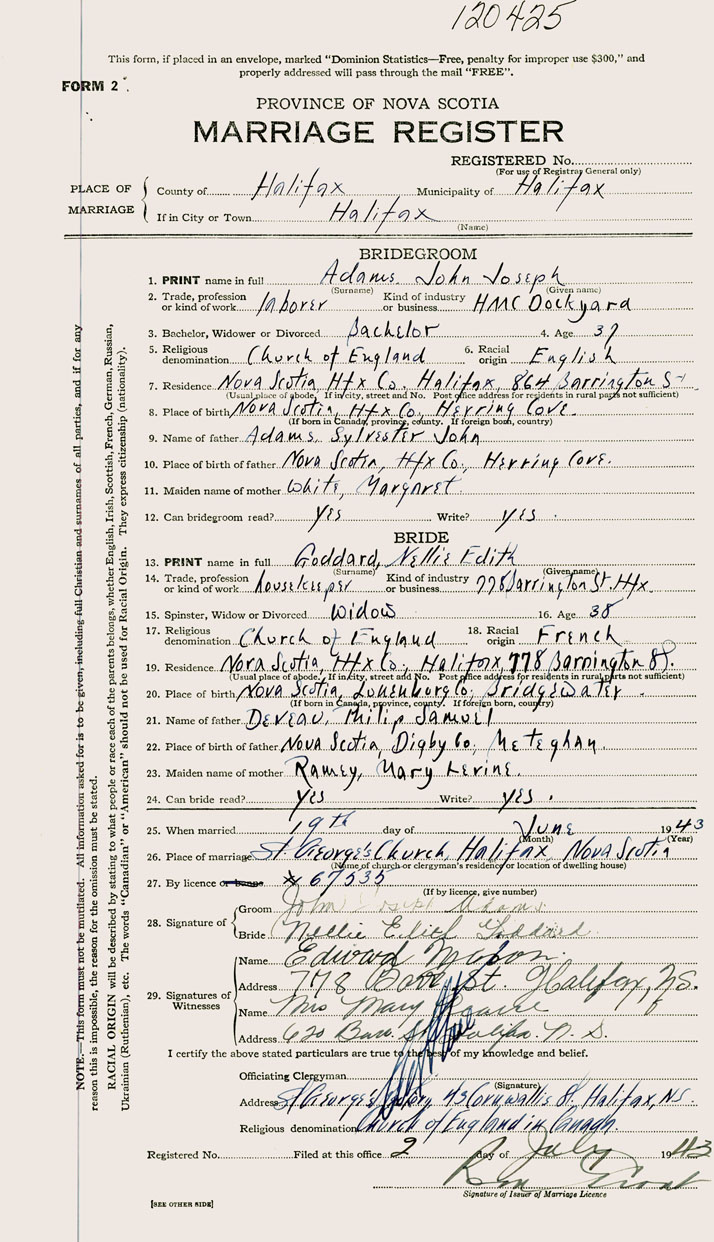 120425
This form, if placed in an envelope, marked "Dominion Statistics—Free, penalty for improper use $300," and
properly addressed will pass through the mail "FREE".
FORM 2
PROVINCE OF NOVA SCOTIA
MARRIAGE REGISTER
REGISTERED No.
(For use of Registrar General only)
PLACE OF MARRIAGE
County of Halifax Municipality of Halifax
If in City or Town Halifax
(Name)
BRIDEGROOM
1. PRINT name in full Adams. John Joseph
(Surname) (Given name)
2. Trade, profession or kind of work laborer Kind of industry or business HMC Dockyard
3. Bachelor, Widower or Divorced Bachelor 4. Age 37
5. Religious denomination Church of England 6. Racial origin English
7. Residence Nova Scotia, Hfx Co. Halifax, 864 Barrington St
(Usual place of abode. If in city, street and No. Post office address for residents in rural parts not sufficient)
8. Place of birth Nova Scotia, Hfx Co., Herring Cove.
(If born in Canada, province, county. If foreign born, country)
9. Name of father Adams, Sylvester John
10. Place of birth of father Nova Scotia, Hfx Co., Herring Cove.
11. Maiden name of mother White, Margaret
12. Can bridegroom read? yes Write? yes.
BRIDE
13. PRINT name in full Goddard, Nellie Edith
(Surname) (Given name)
14. Trade, profession or kind of work housekeeper Kind of industry or business 778 Barrington St. Hfx.
15. Spinster, Widow or Divorced Widow 16. Age 38
17. Religious denomination Church of England 18. Racial origin French
19. Residence Nova Scotia, Hfx Co., Halifax, 778 Barrington St.
(Usual place of abode. If in city, street and No. Post office address for residents in rural parts not sufficient)
20. Place of birth Nova Scotia, Lunenburg Co, Bridgewater
(If born in Canada, province, county. If foreign born, country)
21. Name of father Deveau, Philip Samuel
22. Place of birth of father Nova Scotia, Digby Co, Meteghan.
23. Maiden name of mother Ramey, Mary Levine.
24. Can bride read? yes Write? yes.
25. When married 19th day of June 1943
(Month) (Year)
26. Place of marriage St George's Church, Halifax, Nova Scotia
(Name of church or clergyman's residence or location of dwelling house)
27. By licence or banns 67535
(If by licence, give number)
28. Signature of
Groom John Joseph Adams.
Bride Nellie Edith Goddard.
29. Signatures of Witnesses
Name Edward
Address 778 Barr St. Halifax, N.S.
Name Mrs Mary
Address 620 Barr. St Halifax N. S.
I certify the above stated particulars are true to the best of my knowledge and belief.
Officiating Clergyman
(Signature)
Address St George's Rectory, 43 Cornwallis St, Halifax, NS.
Religious denomination Church of England in Canada.
Registered No. Filed at this office 2 day of July 1943
Signature of Issuer of Marriage Licence
[SEE OTHER SIDE]
NOTE.—This form must not be mutilated. All information asked for is to be given, including full Christian and surnames of all parties, and if for any
reason this is impossible, the reason for the omission must be stated.
RACIAL ORIGIN will be described by stating to what people or race each of the parents belongs, whether English, Irish, Scottish, French, German, Russian,
Ukrainian (Ruthenian), etc. The words "Canadian" or "American" should not be used for Racial Origin. They express citizenship (nationality).